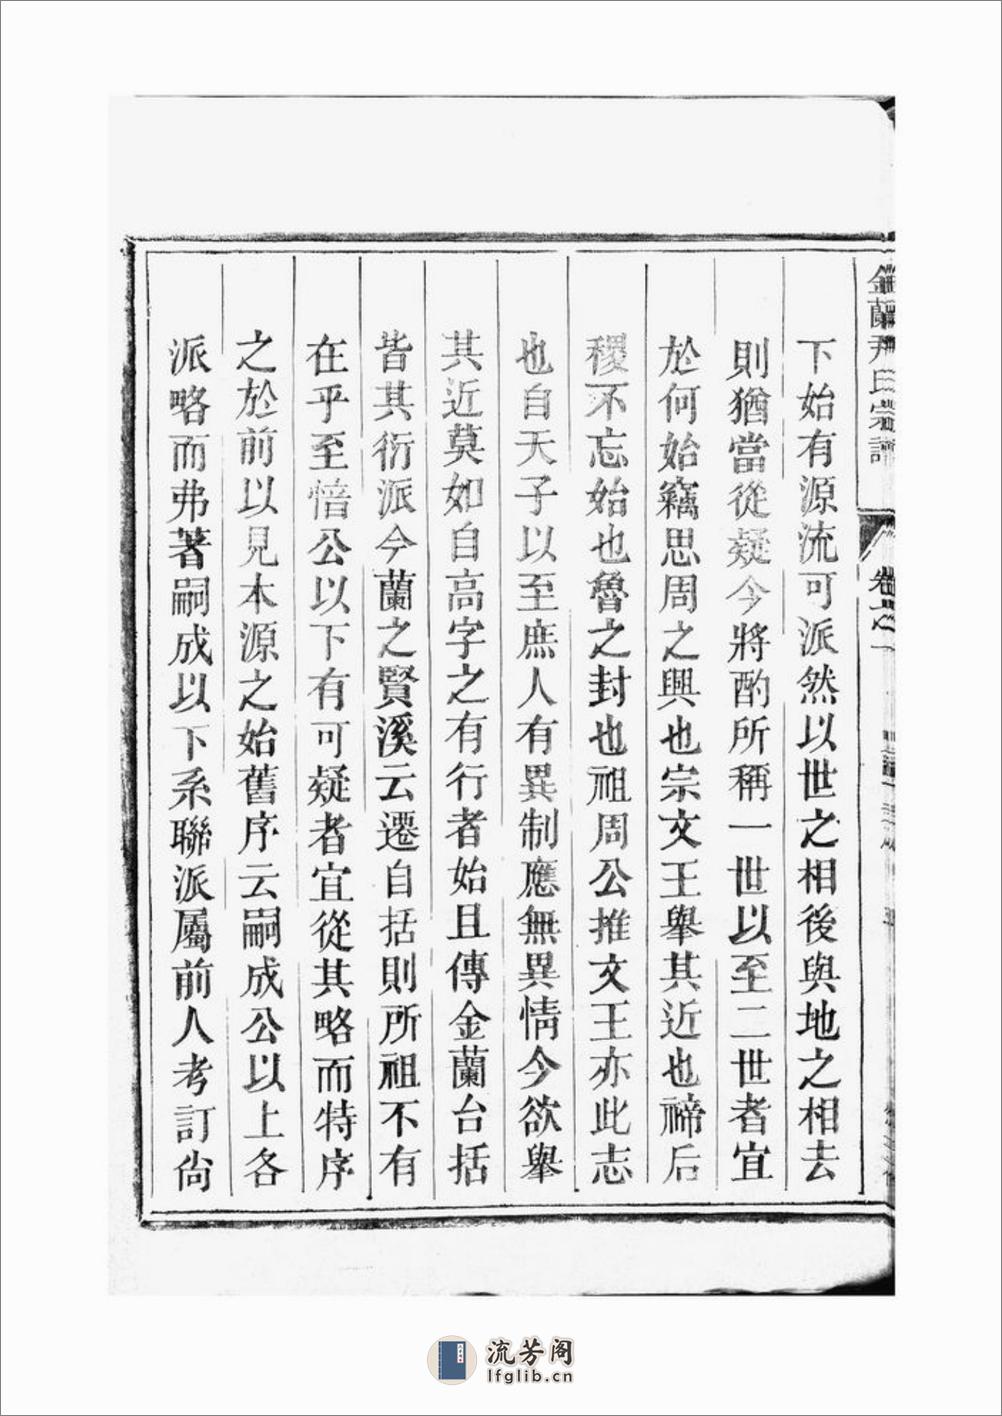 金蘭尹氏宗譜
卷之一
下始有源流可派然以世之相後與地之相去
則猶當從疑今將酌所稱一世以至二世者宜
於何始竊思周之興也宗文王舉其近也禘后
稷不忘始也魯之封也祖周公推文王亦此志
也自天子以至庶人有異制應無異情今欲舉
其近莫如自高字之有行者始且傳金蘭台括
皆其衍派今蘭之賢溪云遷自括則所祖不有
在乎至愔公以下有可疑者宜從其略而特序
之於前以見本源之始舊序云嗣成公以上各
派略而弗著嗣成以下系聯派屬前人考訂尙
流芳阁
lfglib.cn